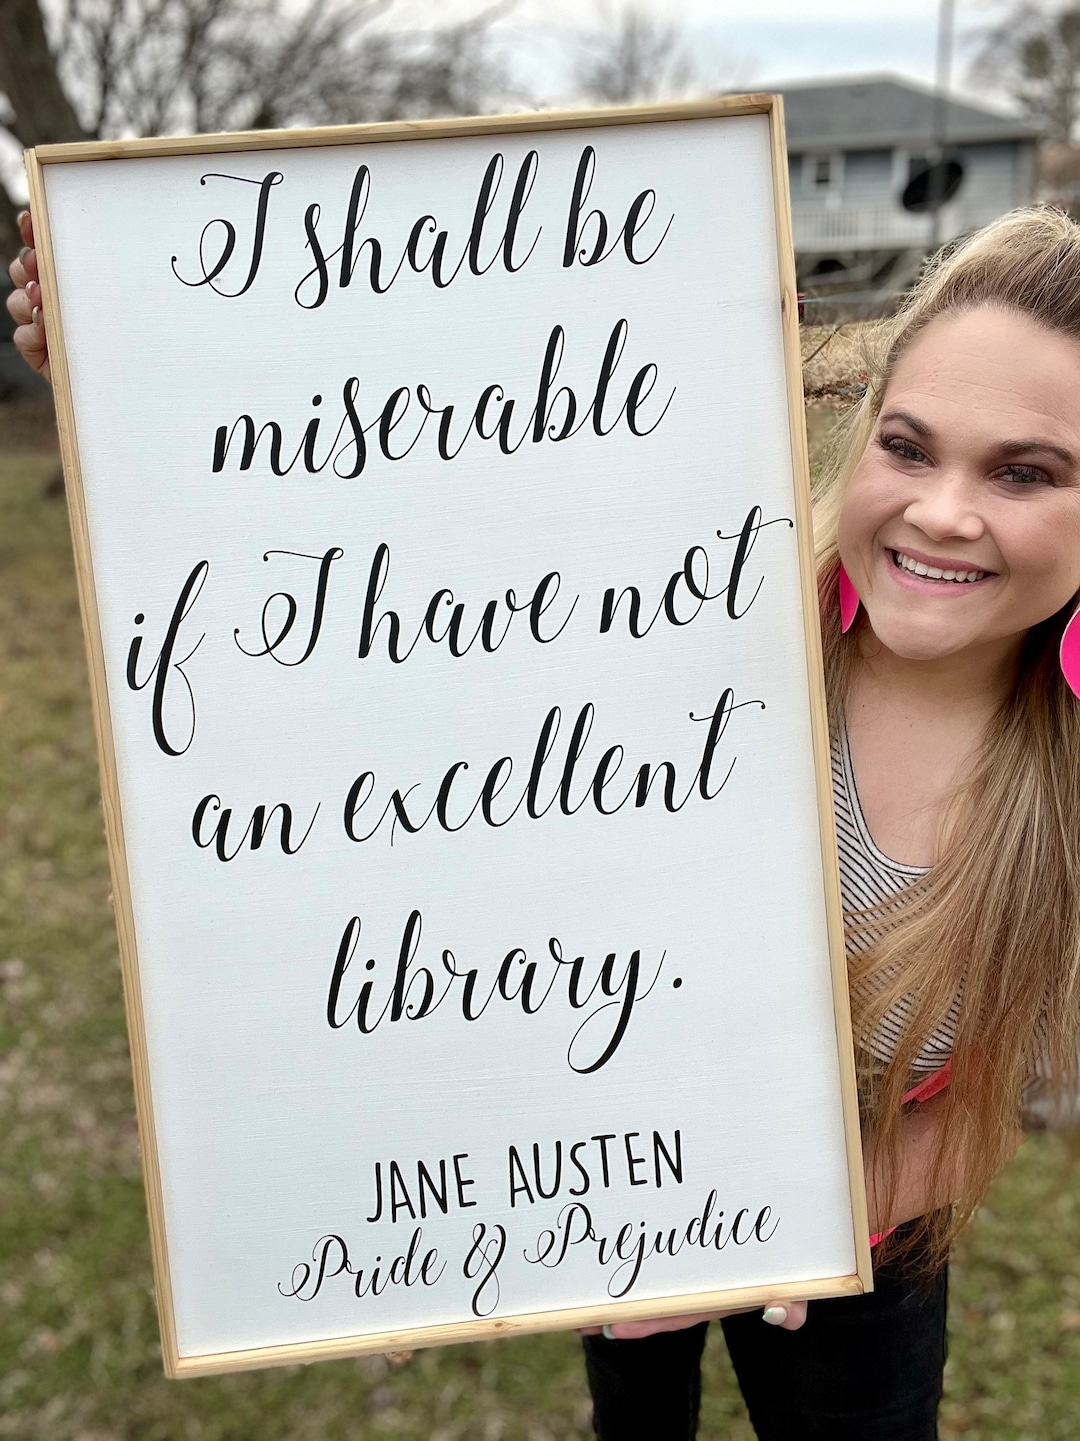 I shall be
miserable
if I have not
an excellent
library.
JANE AUSTEN
Pride & Prejudice